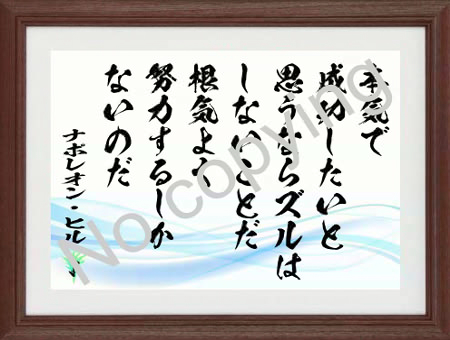 本気で
成功したいと
思うならズルは
しないことだ
根気よく
努力するしか
ないのだ
ナポレオン・ヒル
No copying